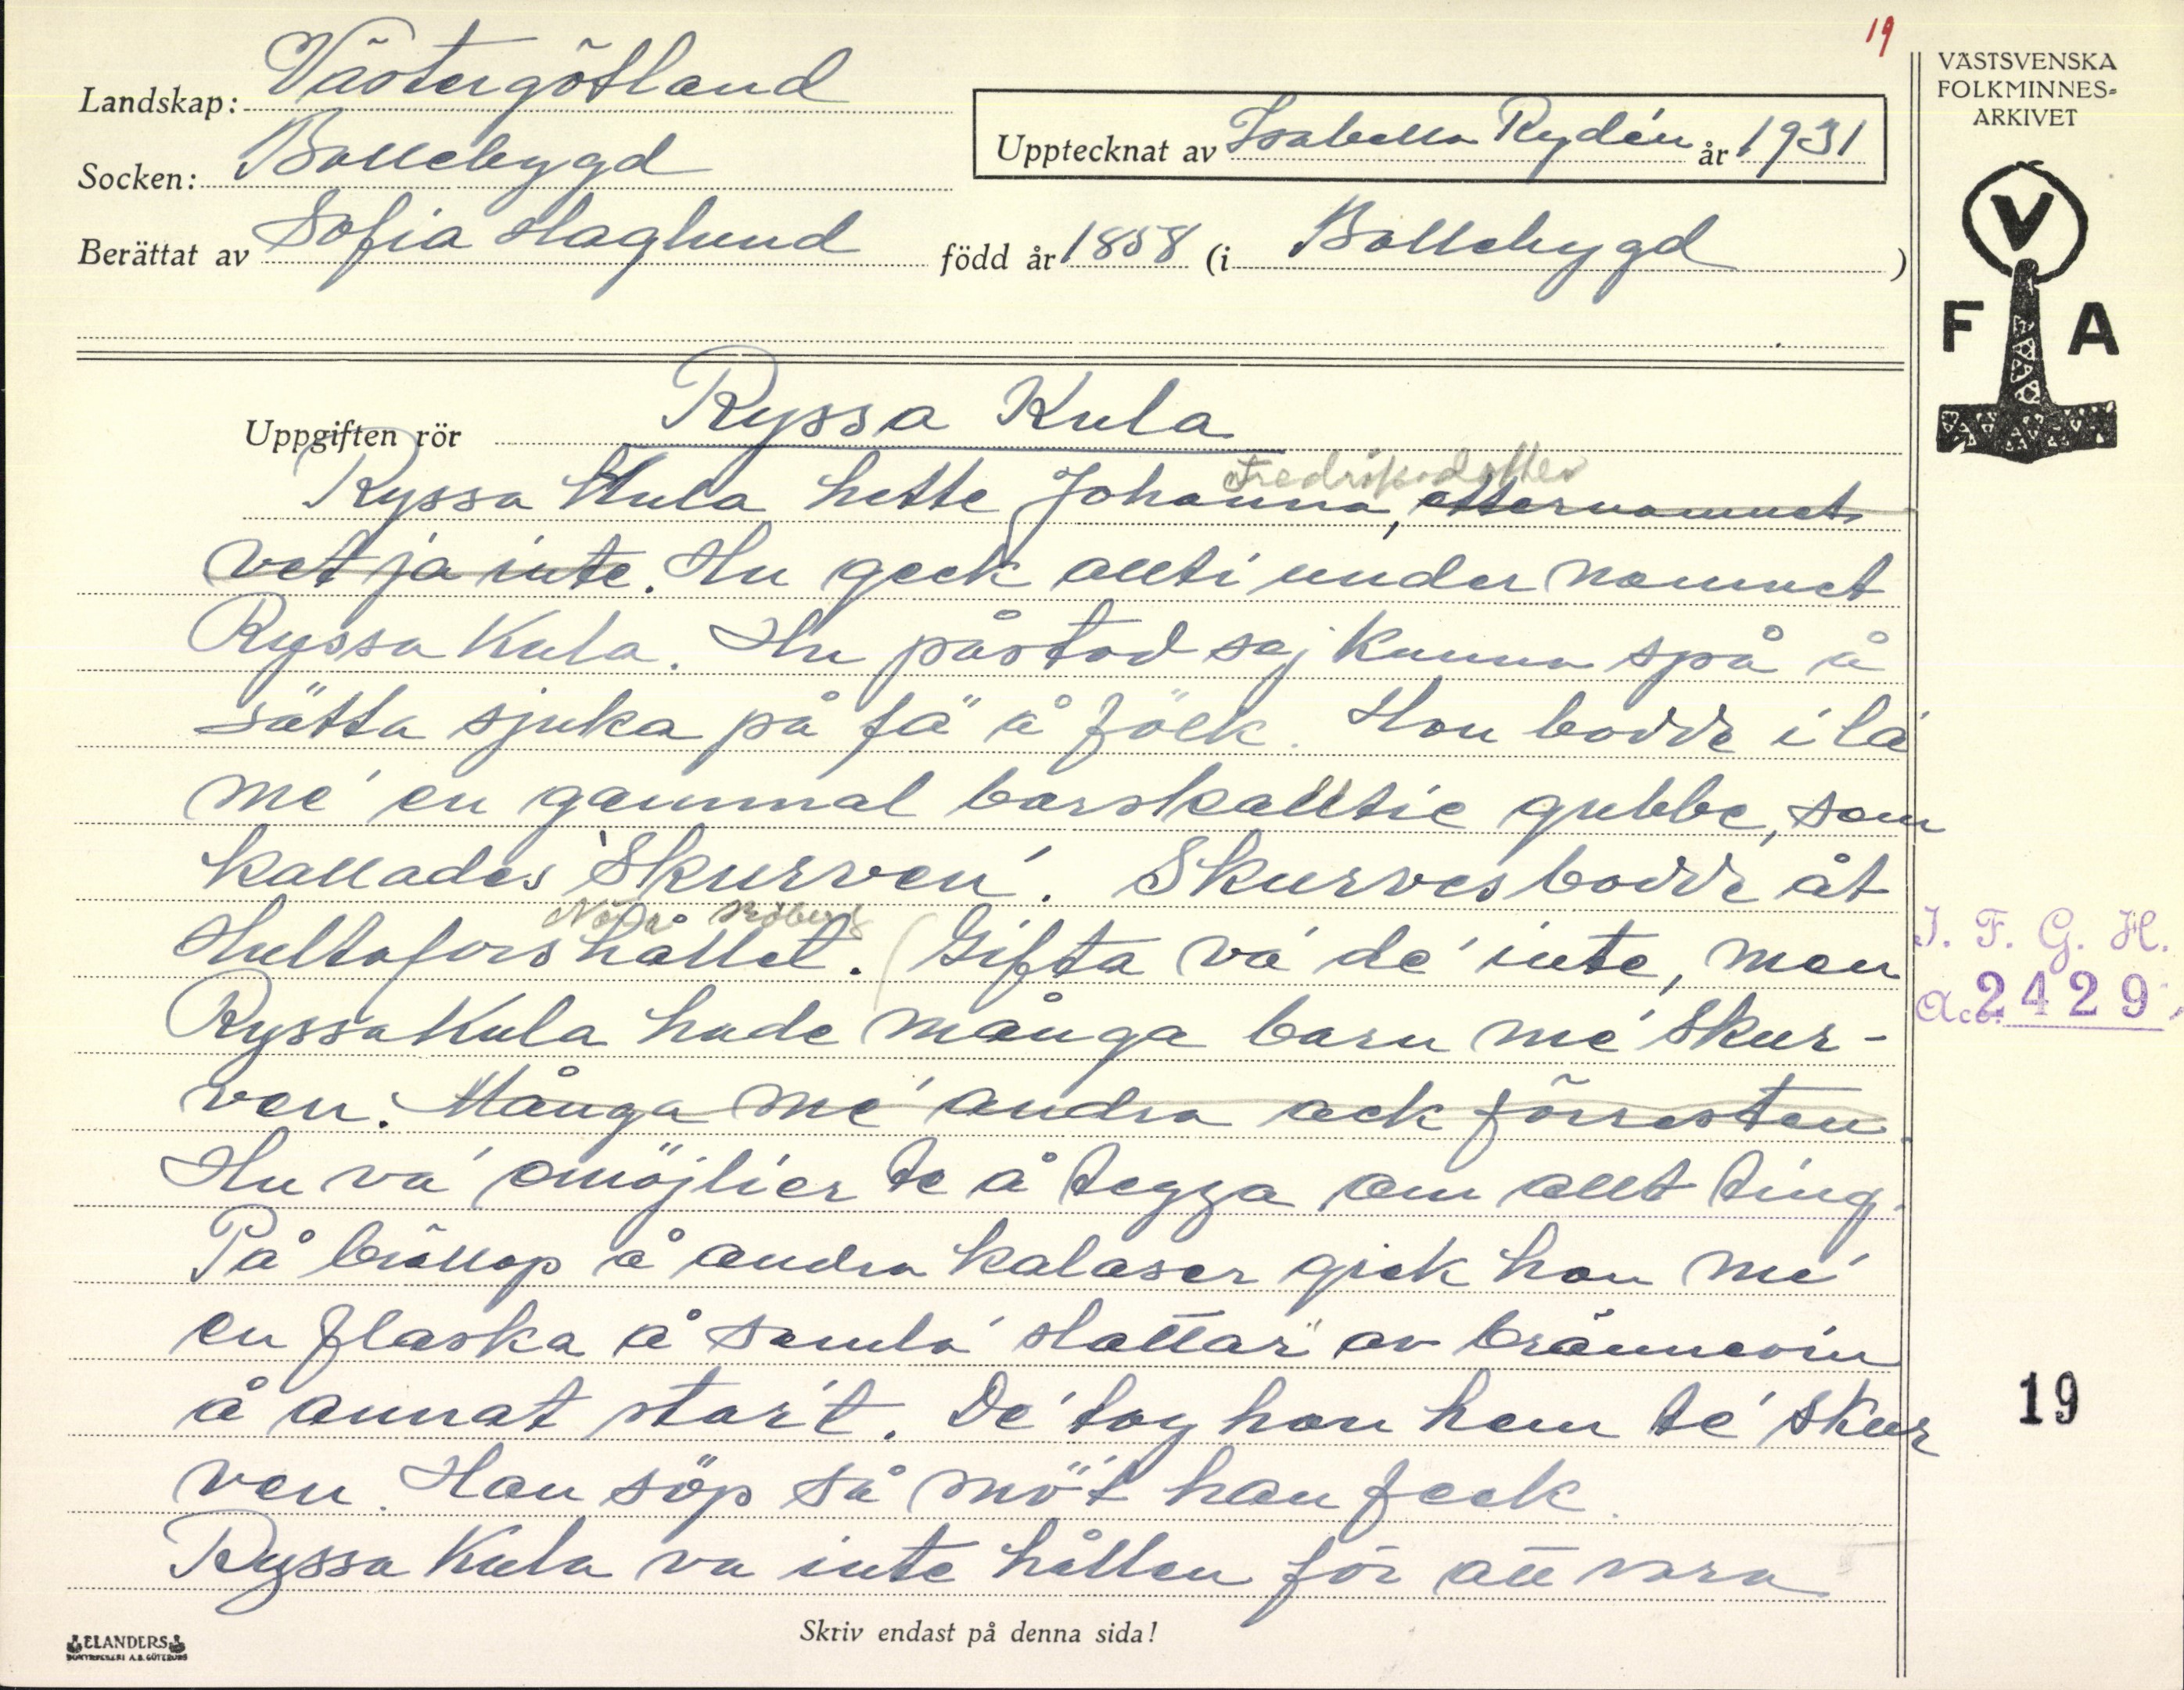 19
VÄSTSVENSKA
FOLKMINNES-
ARKIVET
Landskap: Västergötland
Upptecknat av Isabella Rydén år 1931
Socken: Bollebygd
Berättat av Sofia Haglund född år 1858 (i Bollebygd)
V
F A
Uppgiften rör Ryssa Kula
Fredriksdotter
Ryssa Kula hette Johanna, etternamnet
vet ja inte. Hu geck allti under namnet
Ryssa Kula. Hu påstod saj kunna spå å
sätta sjuka på fä å fölk. Hon bodde i la
me' en gammal barskalltie gubbe, som
kallades 'Skurven'. Skurves bodde åt
Nära
Hultafors hållet. (Gifta va' de' inte, men
Ryssa Kula hade många barn me' Skur-
ven. Många me' andra ack förresten.
Hu va' omöjlier te å tegga om allt ting.
På bröllop å andra kalaser gick hon me'
en flaska å samla' slattar av brännevin
å annat star't. De' tog hon hem te' Skur
ven. Han söp så mö't han feck.
Ryssa Kula va inte hållen för att vara
I. F. G. H.
Acc. 2429
19
Skriv endast på denna sida!
ELANDERS
BOKTRYCKERI A.B. GÖTEBORG